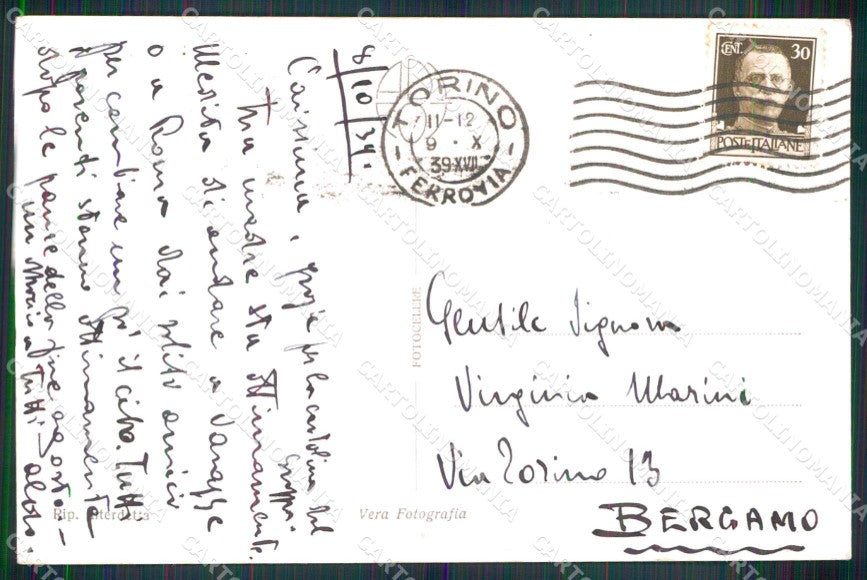 8/10/39.
Carissima, grazie per la cartolina del
gruppo.
mia madre sta ottimamente.
Medita di andare a Varazze
o a Roma dai soliti amici
per cambiare un po' il cibo. Tutti
i parenti stanno ottimamente
dopo le paure della fine agosto.
un abbraccio a tutti. Aldo.
TORINO
11-12
9 · X
39 XVII
FERROVIA
CENT. 30
POSTE ITALIANE
Gentile Signora
Virginia Marini
Via Torino 13
BERGAMO
FOTOCELERE
Rip. interdetta
Vera Fotografia
CARTOLINOMANIA